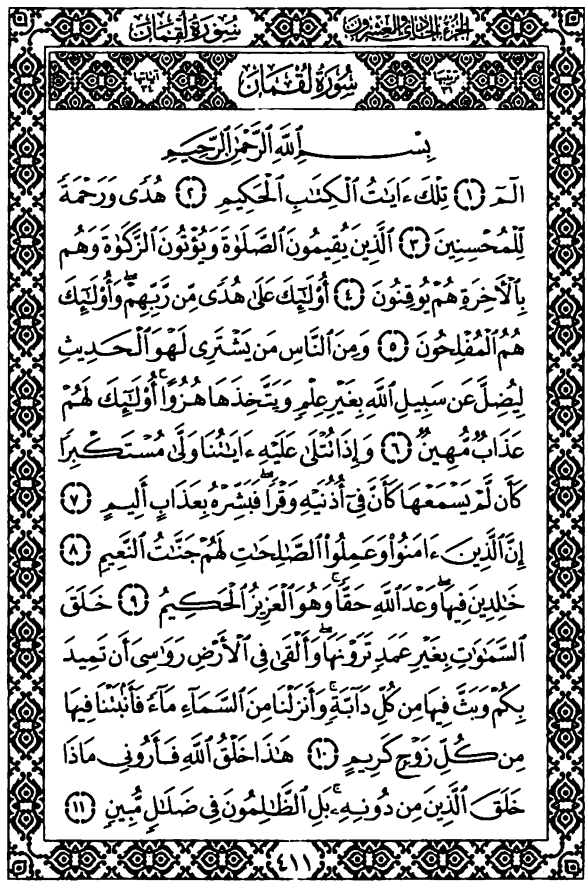 الجزء الحادي والعشرون سُورَةُ لُقْمَان
ترتيبها ٣١ سُورَةُ لُقْمَان آياتها ٣٤
بِسْمِ ٱللَّهِ ٱلرَّحْمَٰنِ ٱلرَّحِيمِ
الٓمٓ ١ تِلْكَ ءَايَٰتُ ٱلْكِتَٰبِ ٱلْحَكِيمِ ٢ هُدًى وَرَحْمَةً
لِّلْمُحْسِنِينَ ٣ ٱلَّذِينَ يُقِيمُونَ ٱلصَّلَوٰةَ وَيُؤْتُونَ ٱلزَّكَوٰةَ وَهُم
بِٱلْأَخِرَةِ هُمْ يُوقِنُونَ ٤ أُو۟لَٰٓئِكَ عَلَىٰ هُدًى مِّن رَّبِّهِمْ ۖ وَأُو۟لَٰٓئِكَ
هُمُ ٱلْمُفْلِحُونَ ٥ وَمِنَ ٱلنَّاسِ مَن يَشْتَرِى لَهْوَ ٱلْحَدِيثِ
لِيُضِلَّ عَن سَبِيلِ ٱللَّهِ بِغَيْرِ عِلْمٍ وَيَتَّخِذَهَا هُزُوًا ۚ أُو۟لَٰٓئِكَ لَهُمْ
عَذَابٌ مُّهِينٌ ٦ وَإِذَا تُتْلَىٰ عَلَيْهِ ءَايَٰتُنَا وَلَّىٰ مُسْتَكْبِرًا
كَأَن لَّمْ يَسْمَعْهَا كَأَنَّ فِىٓ أُذُنَيْهِ وَقْرًا ۖ فَبَشِّرْهُ بِعَذَابٍ أَلِيمٍ ٧
إِنَّ ٱلَّذِينَ ءَامَنُوا۟ وَعَمِلُوا۟ ٱلصَّٰلِحَٰتِ لَهُمْ جَنَّٰتُ ٱلنَّعِيمِ ٨
خَٰلِدِينَ فِيهَا ۖ وَعْدَ ٱللَّهِ حَقًّا ۚ وَهُوَ ٱلْعَزِيزُ ٱلْحَكِيمُ ٩ خَلَقَ
ٱلسَّمَٰوَٰتِ بِغَيْرِ عَمَدٍ تَرَوْنَهَا ۖ وَأَلْقَىٰ فِى ٱلْأَرْضِ رَوَٰسِىَ أَن تَمِيدَ
بِكُمْ وَبَثَّ فِيهَا مِن كُلِّ دَآبَّةٍ ۚ وَأَنزَلْنَا مِنَ ٱلسَّمَآءِ مَآءً فَأَنۢبَتْنَا فِيهَا
مِن كُلِّ زَوْجٍ كَرِيمٍ ١٠ هَٰذَا خَلْقُ ٱللَّهِ فَأَرُونِى مَاذَا
خَلَقَ ٱلَّذِينَ مِن دُونِهِۦ ۚ بَلِ ٱلظَّٰلِمُونَ فِى ضَلَٰلٍ مُّبِينٍ ١١
٤١١